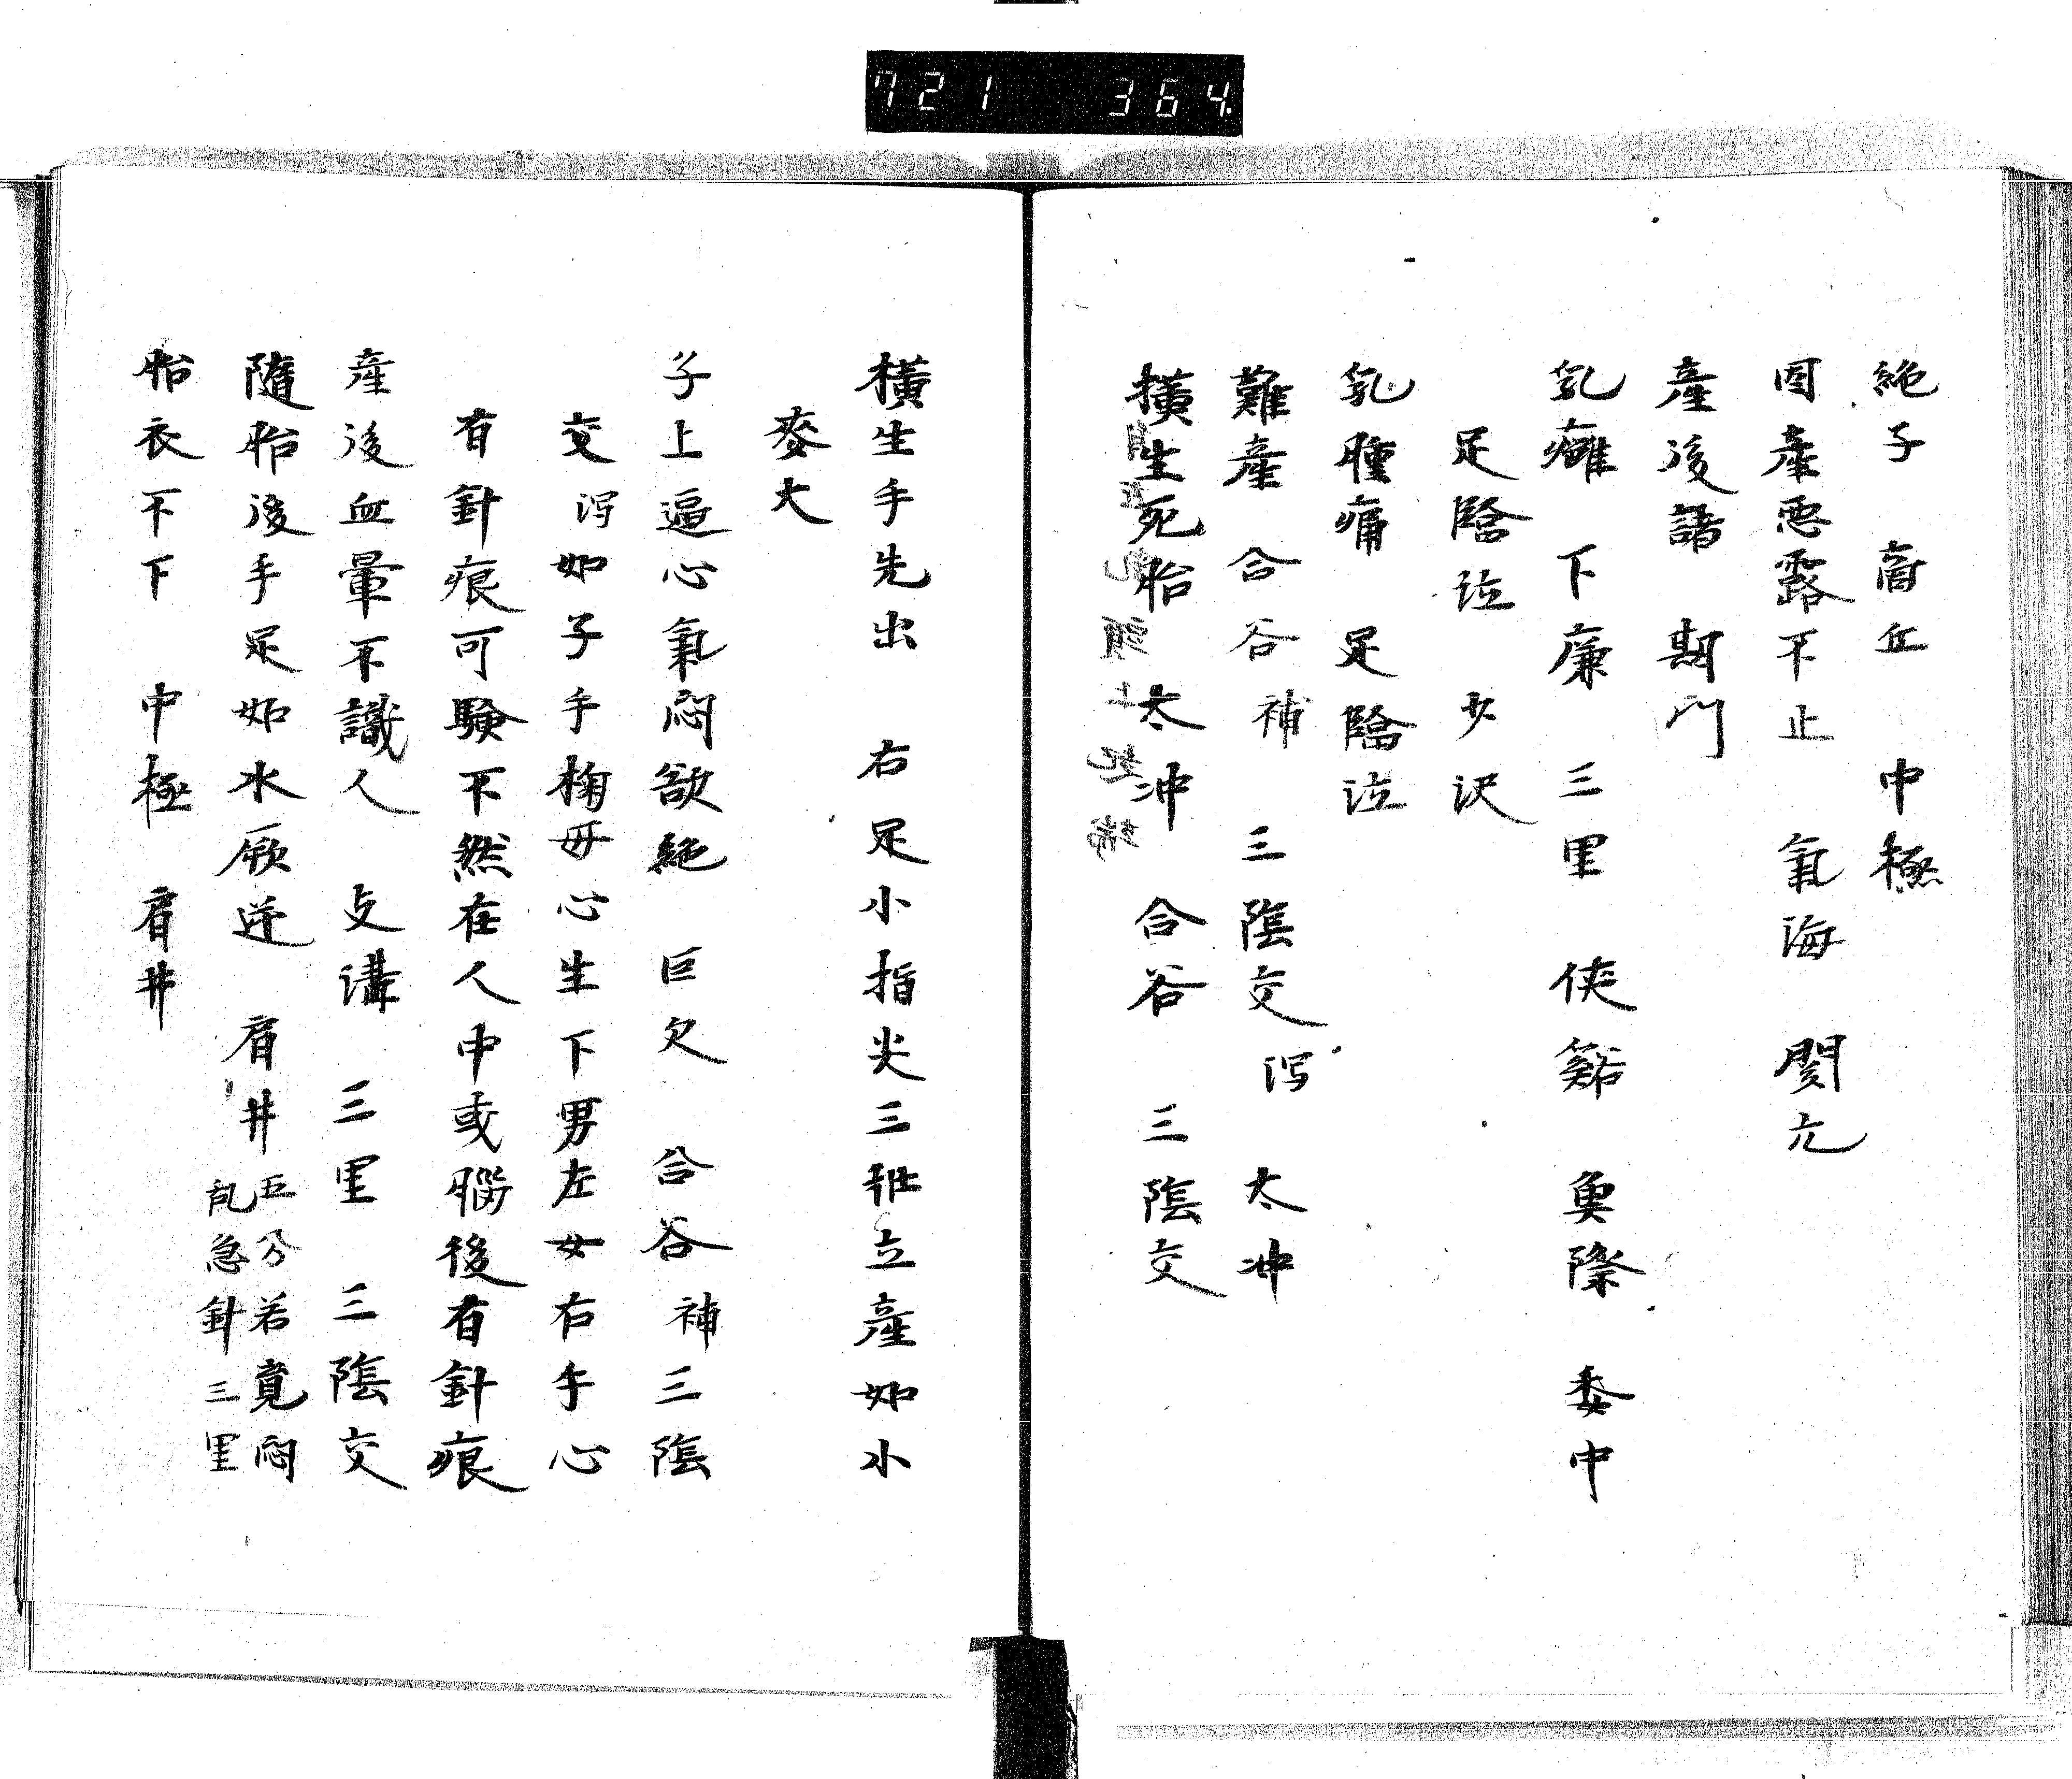 721 364
絶子 啇丘 中極
因産惡露不止 氣海 関元
産後諸 期門
乳癰 下廉 三里 侠谿 魚際 委中
足臨泣 少沢
乳腫痛 足臨泣
難産 合谷補 三陰交瀉 太冲
横生死胎 太冲 合谷 三陰交
横生手先出 右足小指尖三壯立産如小
麥大
子上逼心氣悶欲絶 巨欠 合谷補三陰
交瀉如子手掬毋心生下男左女右手心
有針痕可驗不然在人中或腦後有針痕
産後血暈不識人 支溝 三里 三陰交
隨胎後手足如氷厥逆 肩井五分若竟悶
乱急針三里
胎衣不下 中極 肩井